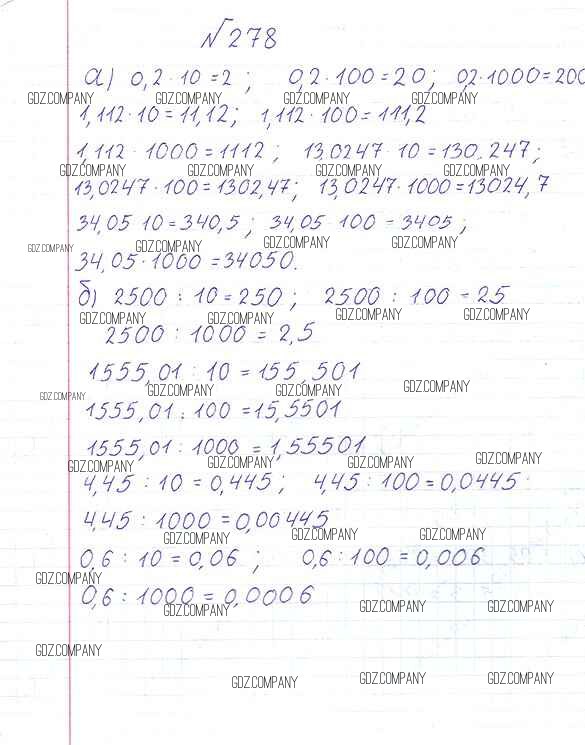 №278
а) 0,2 · 10 = 2 ; 0,2 · 100 = 20 ; 02 · 1000 = 200
GDZ.COMPANY GDZ.COMPANY GDZ.COMPANY GDZ.COMPANY
1,112 · 10 = 11,12 ; 1,112 · 100 = 111,2
1,112 · 1000 = 1112 ; 13,0247 · 10 = 130,247 ;
GDZ.COMPANY GDZ.COMPANY GDZ.COMPANY GDZ.COMPANY
13,0247 · 100 = 1302,47 ; 13,0247 · 1000 = 13024,7
34,05 · 10 = 340,5 ; 34,05 · 100 = 3405 ;
GDZ.COMPANY GDZ.COMPANY GDZ.COMPANY GDZ.COMPANY
34,05 · 1000 = 34050.
б) 2500 : 10 = 250 ; 2500 : 100 = 25
GDZ.COMPANY GDZ.COMPANY GDZ.COMPANY GDZ.COMPANY
2500 : 1000 = 2,5
1555,01 : 10 = 155,501
GDZ.COMPANY GDZ.COMPANY GDZ.COMPANY GDZ.COMPANY
1555,01 : 100 = 15,5501
1555,01 : 1000 = 1,55501
GDZ.COMPANY GDZ.COMPANY GDZ.COMPANY GDZ.COMPANY
4,45 : 10 = 0,445 ; 4,45 : 100 = 0,0445
4,45 : 1000 = 0,00445
GDZ.COMPANY GDZ.COMPANY GDZ.COMPANY
0,6 : 10 = 0,06 ; 0,6 : 100 = 0,006
GDZ.COMPANY
0,6 : 1000 = 0,0006
GDZ.COMPANY GDZ.COMPANY GDZ.COMPANY
GDZ.COMPANY
GDZ.COMPANY GDZ.COMPANY GDZ.COMPANY